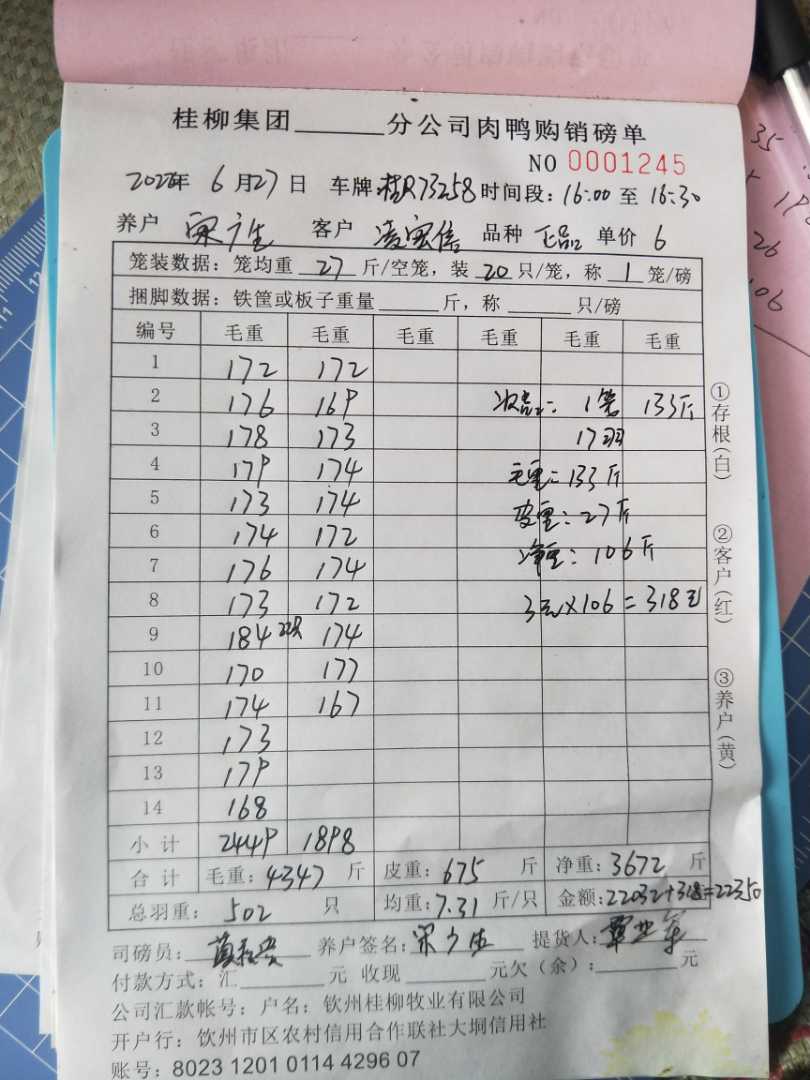 桂柳集团______分公司肉鸭购销磅单
NO 0001245
2022年 6月27日 车牌:桂R73258 时间段:16:00 至 16:30
养户 客户 凌宏信 品种 正品 单价 6
笼装数据:笼均重 27 斤/空笼,装 20 只/笼,称 1 笼/磅
捆脚数据:铁筐或板子重量______斤,称______只/磅
编号 毛重 毛重 毛重 毛重 毛重 毛重
1 172 172
2 176 169 次品: 1笼 133斤
3 178 173 17羽
4 179 174 毛重:133斤
5 173 174 皮重:27斤
6 174 172 净重:106斤
7 176 174
8 173 172 3元×106=318元
9 184 22只 174
10 170 177
11 174 167
12 173
13 179
14 168
小计 2449 1898
合计 毛重:4347 斤 皮重:675 斤 净重:3672 斤
总羽重:502 只 均重:7.31 斤/只 金额:22032+318=22350
司磅员: 养户签名: 提货人:
付款方式:汇______元 收现______元欠(余):______元
公司汇款帐号:户名:钦州桂柳牧业有限公司
开户行:钦州市区农村信用合作联社大垌信用社
账号:8023 1201 0114 4296 07
①存根(白) ②客户(红) ③养户(黄)
35
26
06